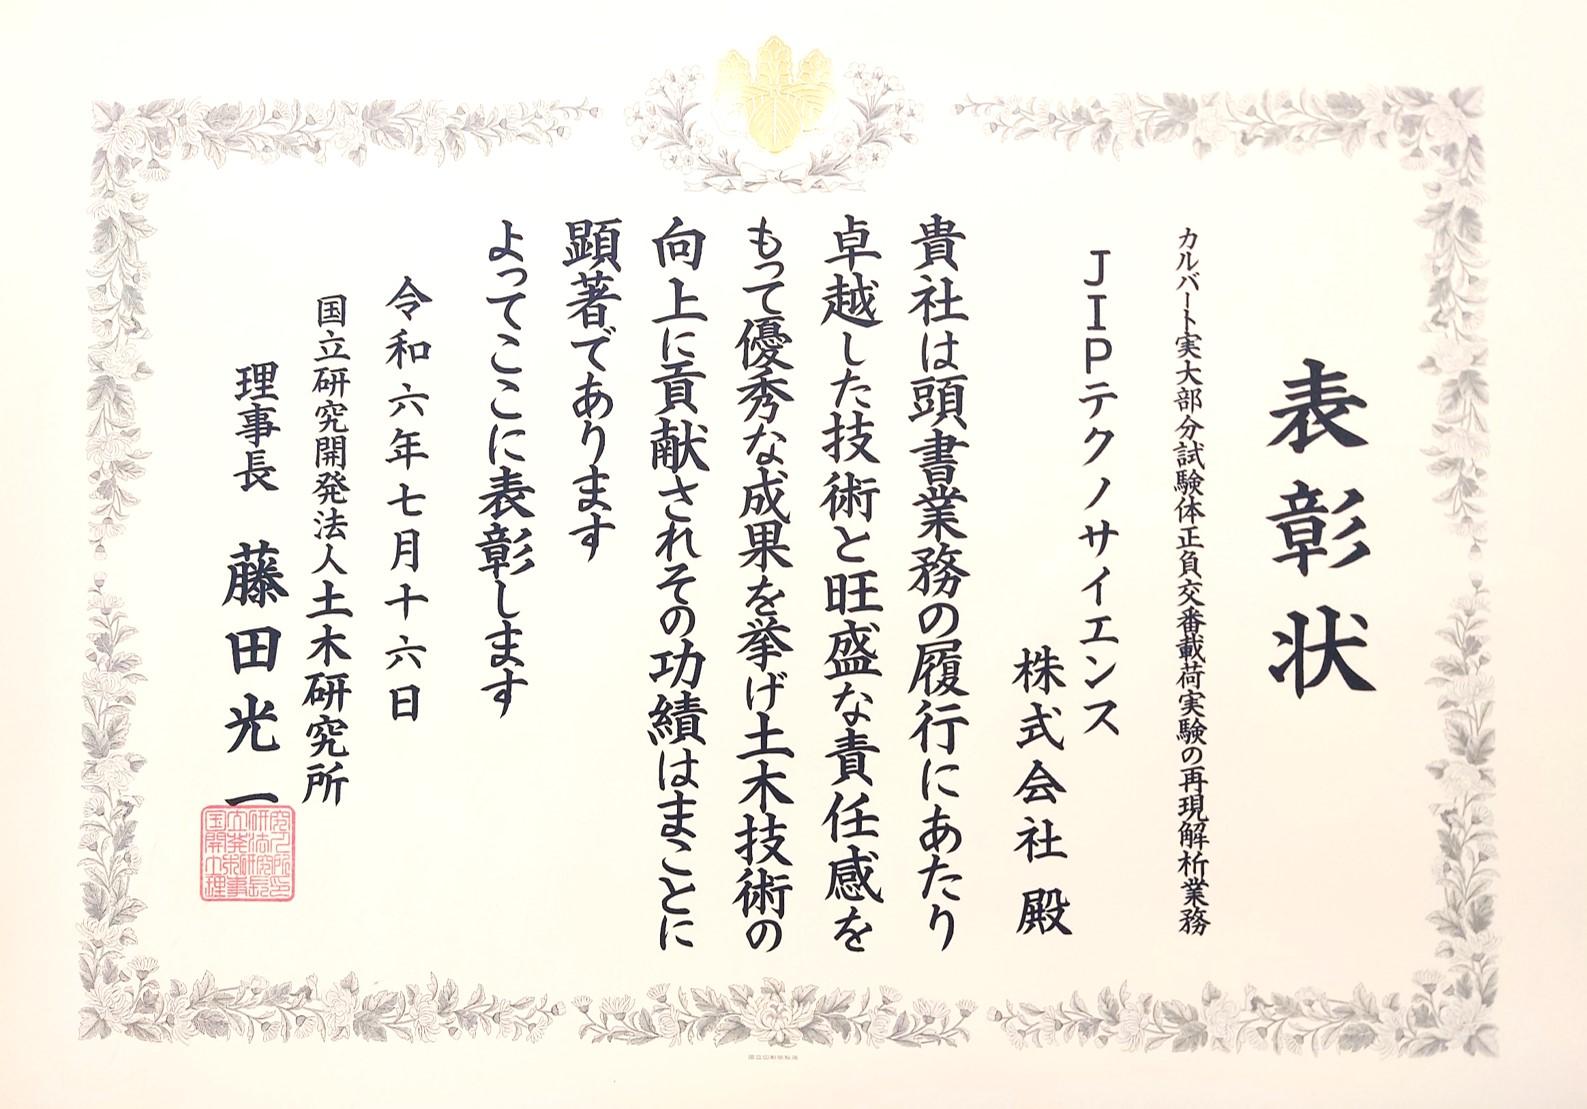 表彰状
カルバート実大部分試験体正負交番載荷実験の再現解析業務
JIPテクノサイエンス
株式会社 殿
貴社は頭書業務の履行にあたり
卓越した技術と旺盛な責任感を
もって優秀な成果を挙げ土木技術の
向上に貢献されその功績はまことに
顕著であります
よってここに表彰します
令和六年七月十六日
国立研究開発法人土木研究所
理事長 藤田光一
国立印刷局製造